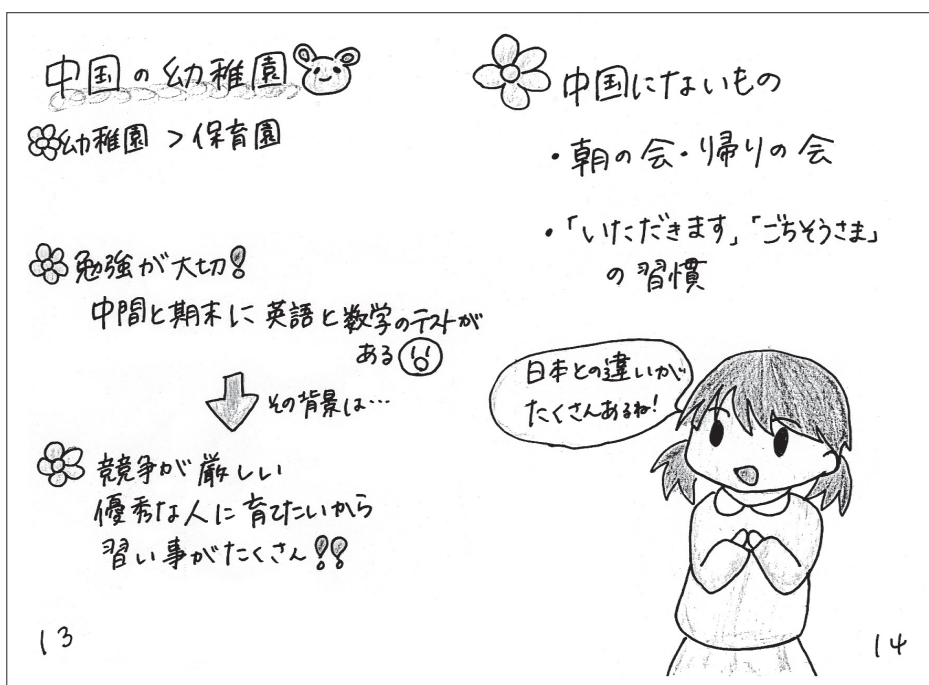 中国の幼稚園
幼稚園 > 保育園
勉強が大切!
中間と期末に英語と数学のテストが
ある
その背景は…
競争が厳しい
優秀な人に育てたいから
習い事がたくさん!!
13
中国にないもの
・朝の会・帰りの会
・「いただきます」「ごちそうさま」
の習慣
日本との違いが
たくさんあるね!
14